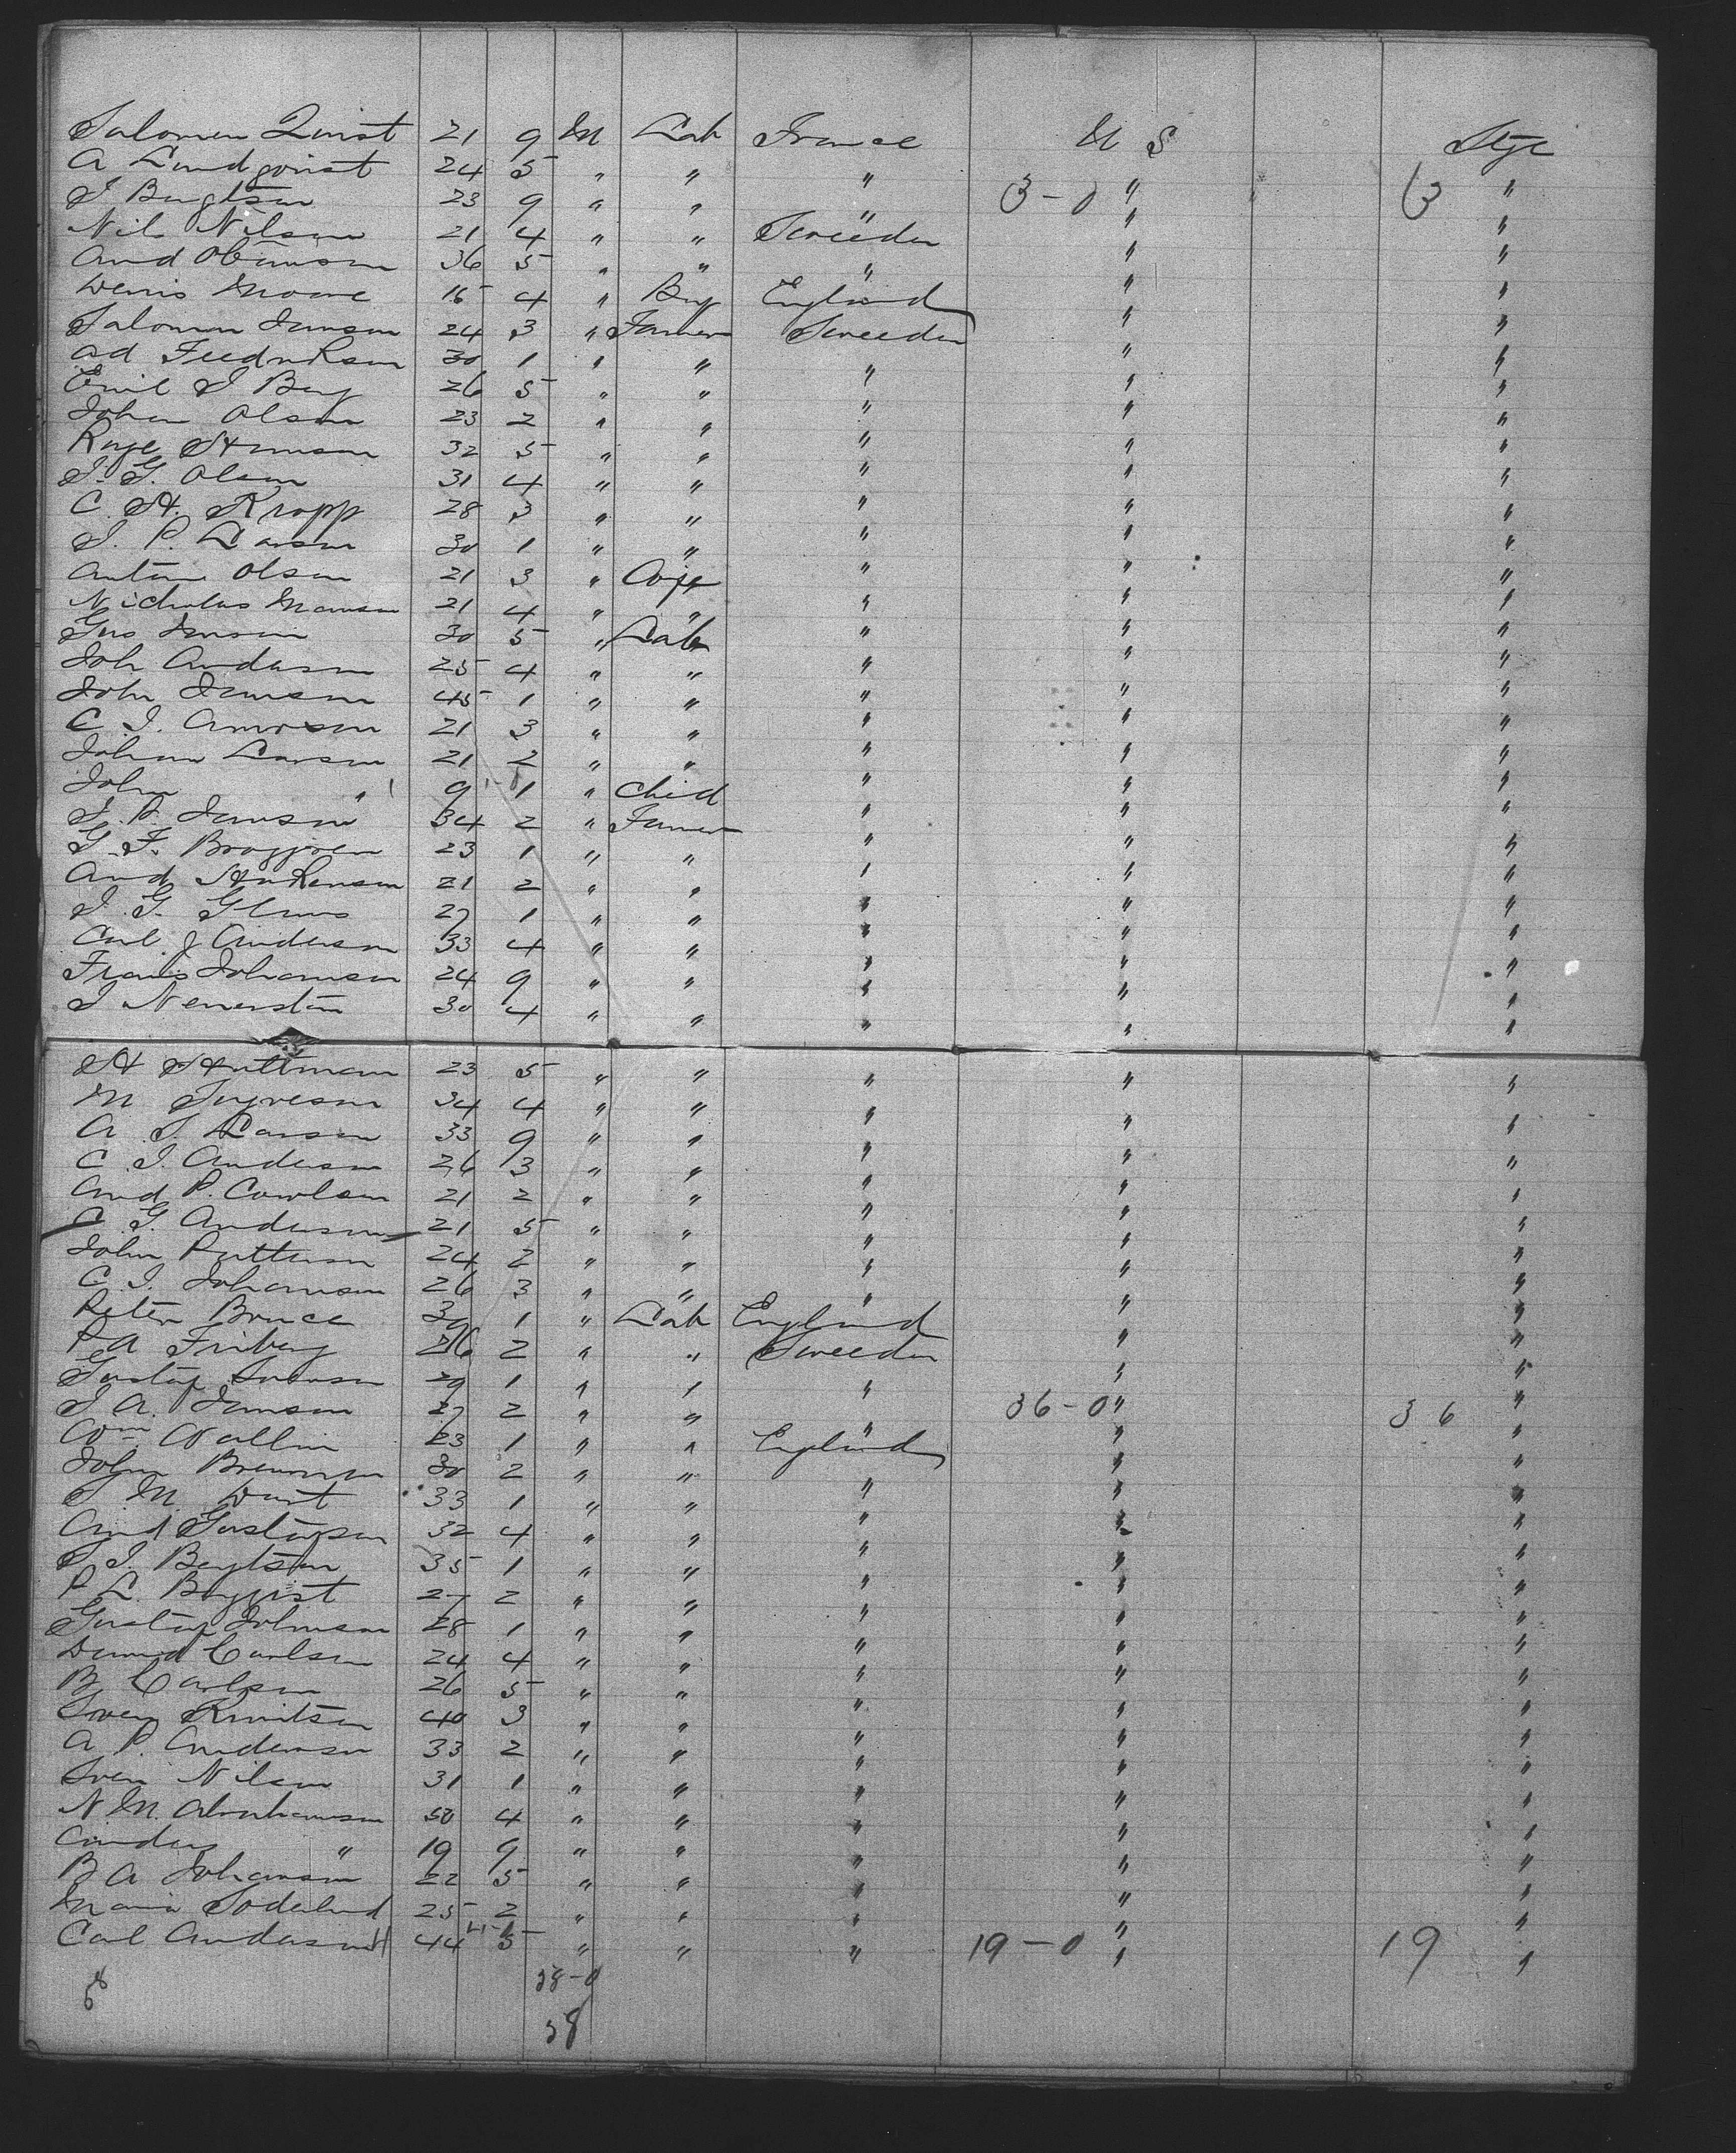 Salomon Quist 21 9 M Lab France U S Stge
A Lundqvist 24 5 " " " " "
J Bengtson 23 9 " " " 3-0 " 3 "
Nils Nilson 21 4 " " Sweeden " "
And 36 5 " " " " "
Denis Moore 16 4 " Boy England " "
Salomon Janson 24 3 " Farmer Sweeden " "
Ad Fredrikson 30 1 " " " " "
Emil J Berg 26 5 " " " " "
Johan Olson 23 2 " " " " "
32 5 " " " " "
J. G. Olson 31 4 " " " " "
C. A. Kropp 28 3 " " " " "
J. P. Larson 30 1 " " " " "
Anton Olson 21 3 " " " "
Nicholas Monson 21 4 " " " " "
Gus Jonson 30 5 " Lab " " "
Joh Anderson 25 4 " " " " "
John Janson 45 1 " " " " "
C. J. 21 3 " " " " "
Johan Larson 21 2 " " " " "
John " 9 1 " Child " " "
J. P. Janson 34 2 " Farmer " " "
G. F. 23 1 " " " " "
And 21 2 " " " " "
J. G. 27 1 " " " " "
Carl J Anderson 33 4 " " " " "
Frans Johanson 24 9 " " " " "
J 30 4 " " " " "
H Huttman 23 5 " " " " "
M 34 4 " " " " "
A. J. Larson 33 9 " " " " "
C. J. Anderson 26 3 " " " " "
And P. Carolson 21 2 " " " " "
C. G. Anderson 21 5 " " " " "
John Patterson 24 2 " " " " "
C. J. Johanson 26 3 " " " " "
Peter Bruce 39 1 " Lab England " "
P A Friberg 26 2 " " Sweeden " "
Gustaf Svenson 29 1 " " " " "
J A. Janson 27 2 " " " 36-0 " 36 "
Wm Wallin 23 1 " " England " "
John Brennan 30 2 " " " " "
J. M. 33 1 " " " " "
And Gustafson 32 4 " " " " "
J. Bengtson 35 1 " " " " "
P L. 27 2 " " " " "
Gustaf Johnson 28 1 " " " " "
Carlson 24 4 " " " " "
B Carlson 26 5 " " " " "
Sven Knutson 40 3 " " " " "
A P. Anderson 33 2 " " " " "
Sven Nilson 31 1 " " " " "
N M. Abrahamson 50 4 " " " " "
Anders " 19 9 " " " " "
B A Johanson 22 5 " " " " "
Maria Soderlund 25 2 " " " " "
Carl Anderson 44 5 " " " 19-0 " 19 "
58-0
58